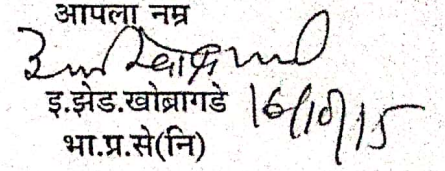 आपला नम्र
इ.झेड.खोब्रागडे 16/10/15
भा.प्र.से(नि)